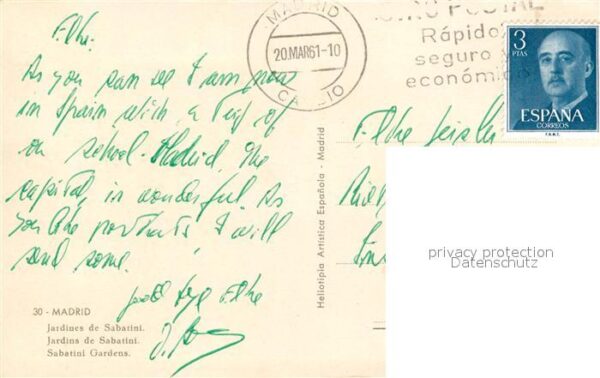 Elke:
As you can see I am now
in Spain with a trip of
our school. Madrid, the
capital, is wonderful. As
you like postcards I will
send some.
Elke
30 - MADRID
Jardines de Sabatini.
Jardins de Sabatini.
Sabatini Gardens.
Heliotipia Artística Española - Madrid
MADRID
20.MAR61-10
POSTAL
Rápido
seguro y
económico
3
PTAS
ESPAÑA
CORREOS
F.N.M.T.
Elke
privacy protection
Datenschutz